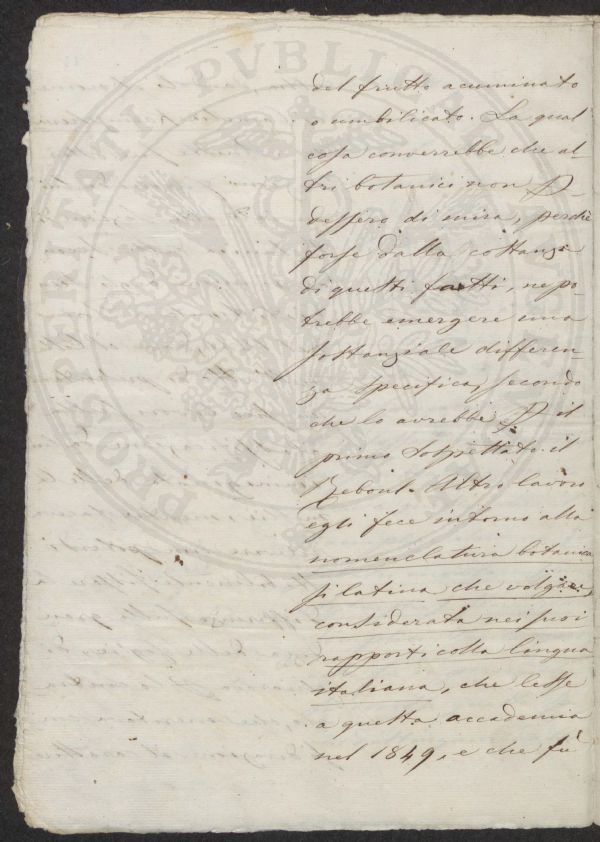 del frutto acuminato
o umbilicato. La qual
cosa converrebbe che al-
tri botanici non
dessero di mira, perchè
forse dalla costanza
di questi fatti, ne po-
trebbe emergere una
sostanziale differen
za specifica, secondo
che lo avrebbe il
primo sospettato il
Reboul. Altro lavoro
egli fece intorno alla
nomenclatura botanica
sì latina che volgare,
considerata nei suoi
rapporti colla lingua
italiana, che lesse
a questa accademia
nel 1849, e che fù
PROSPERITATI PVBLICAE